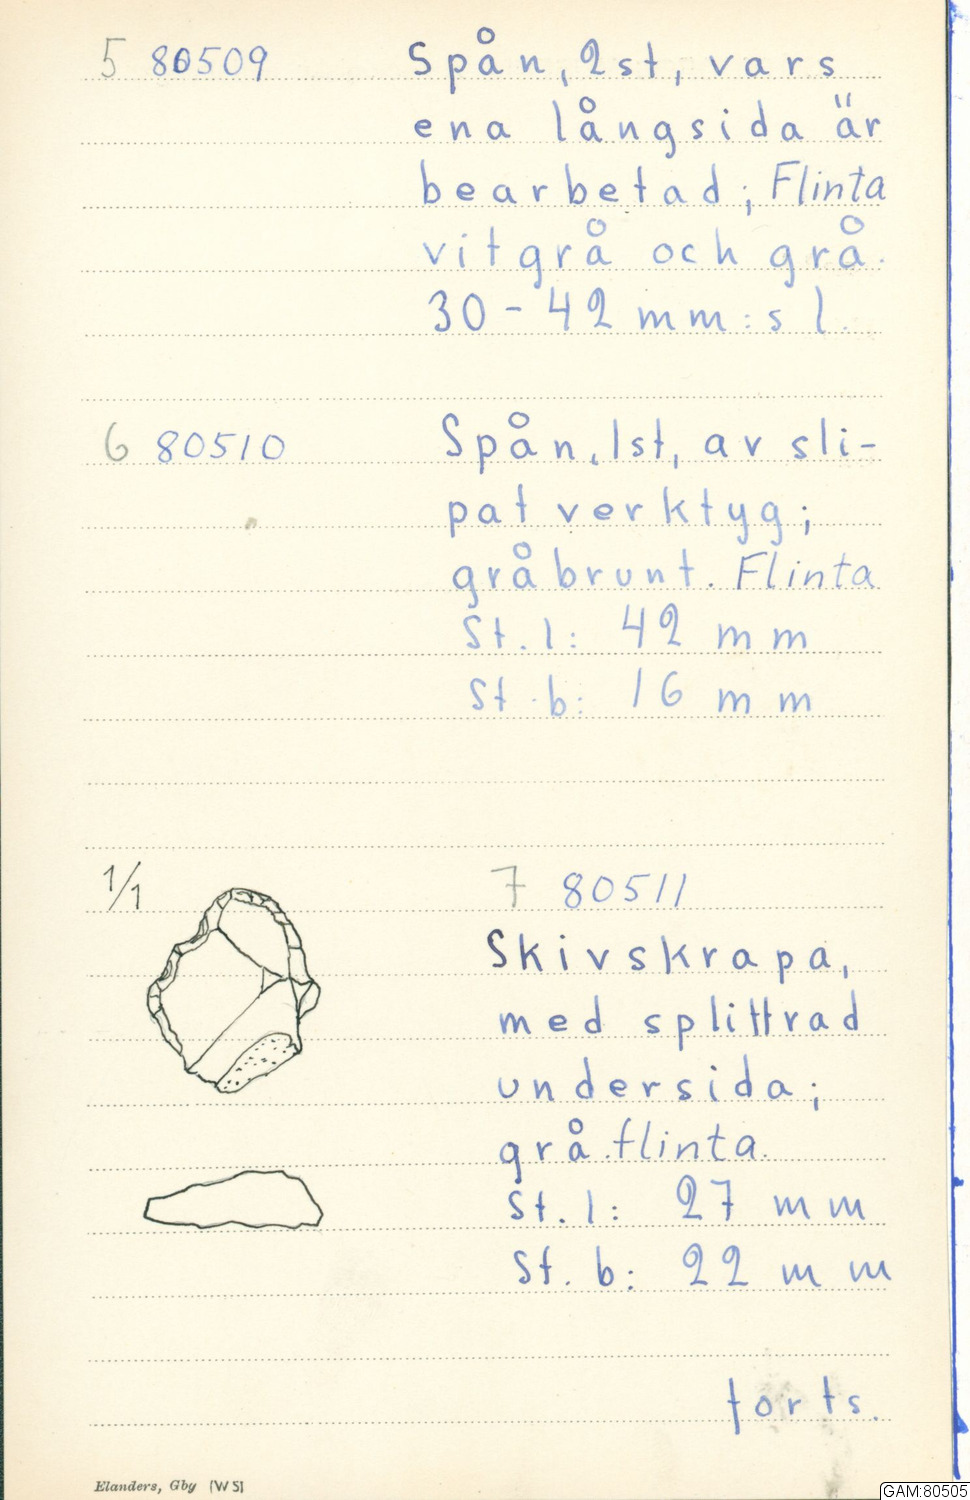 5 80509 Spån, 2st, vars
ena långsida är
bearbetad; Flinta
vitgrå och grå.
30-42 mm:s l.
6 80510 Spån, 1st, av sli-
pat verktyg;
gråbrunt. Flinta
St. l: 42 mm
St. b: 16 mm
1/1
7 80511
Skivskrapa,
med splittrad
undersida;
grå flinta.
St. l: 27 mm
St. b: 22 mm
forts.
Elanders, Gby (W 5)
GAM:80505